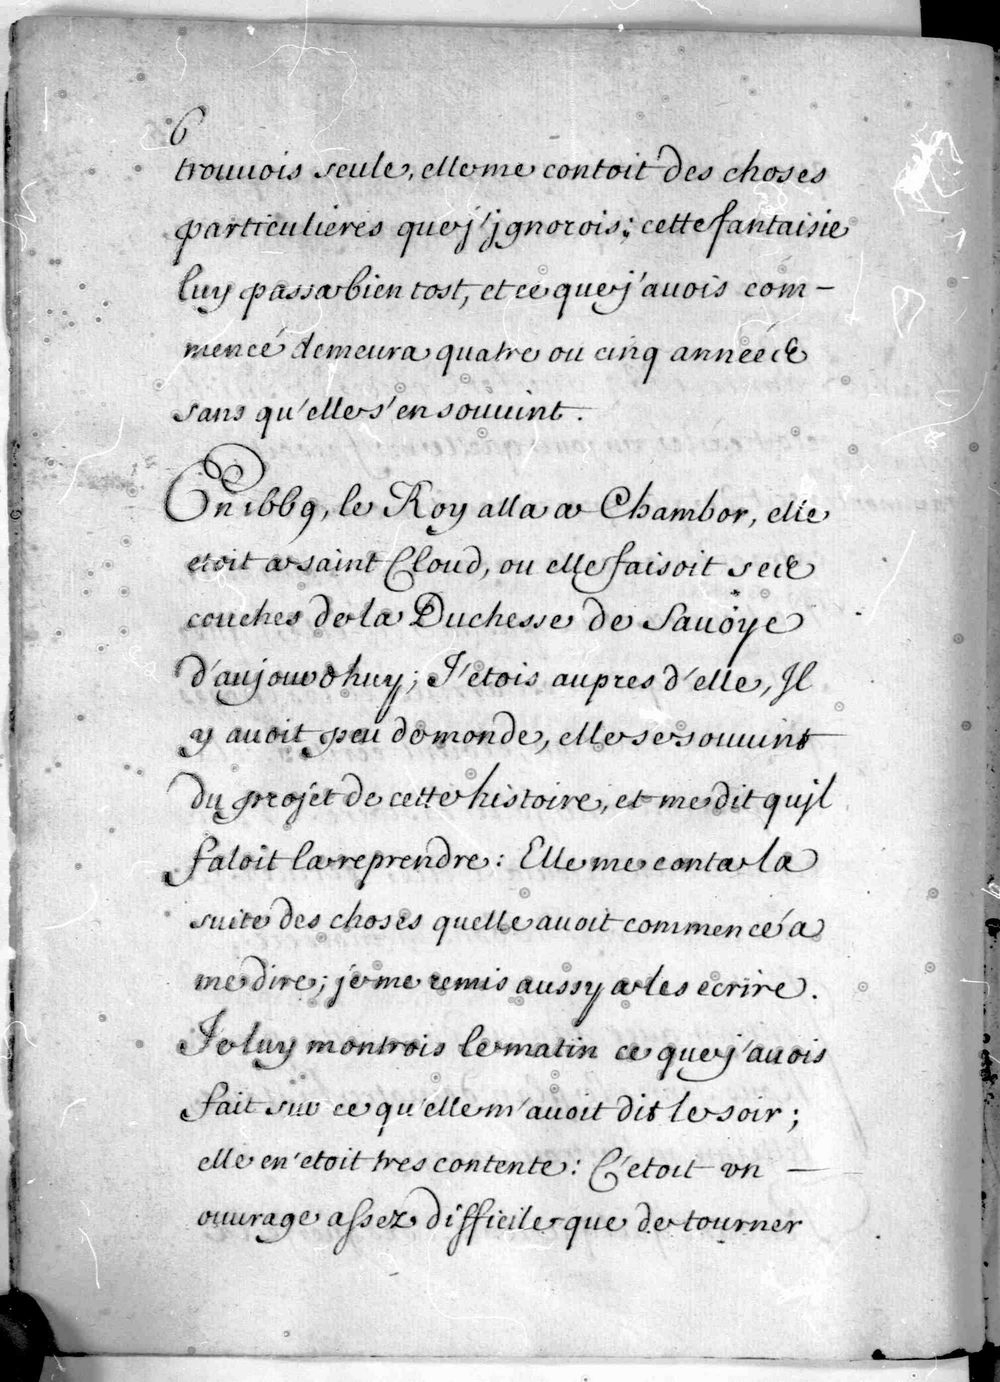 6
trouuois seule, elle me contoit des choses
particulieres que j'jgnorois; cette fantaisie
luy passa bien tost, et ce que j'auois com-
mencé demeura quatre ou cinq années
sans qu'elle s'en souuint.
En 1669, le Roy alla a Chambor, elle
etoit a saint Cloud, ou elle faisoit ses
couches de la Duchesse de Sauoÿe
d'aujourdhuy; J'etois aupres d'elle, Jl
y auoit peu de monde, elle se souuint
du projet de cette histoire, et me dit qu'jl
faloit la reprendre: Elle me conta la
suite des choses quelle auoit commencé a
me dire; je me remis aussy a les ecrire.
Je luy montrois le matin ce que j'auois
fait sur ce qu'elle m'auoit dit le soir;
elle en etoit tres contente: C'etoit vn
ouurage assez difficile que de tourner